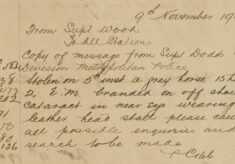 9th November 19
From Supt Wood
To All Stations
Copy of message from Supt Dodd
Division Metropolitan Police
Stolen on 5th inst a grey horse 15 h
2 E.M. branded on off shou
cataract in near eye wearing
leather head stall please cau
all possible enquiries and
search to be made